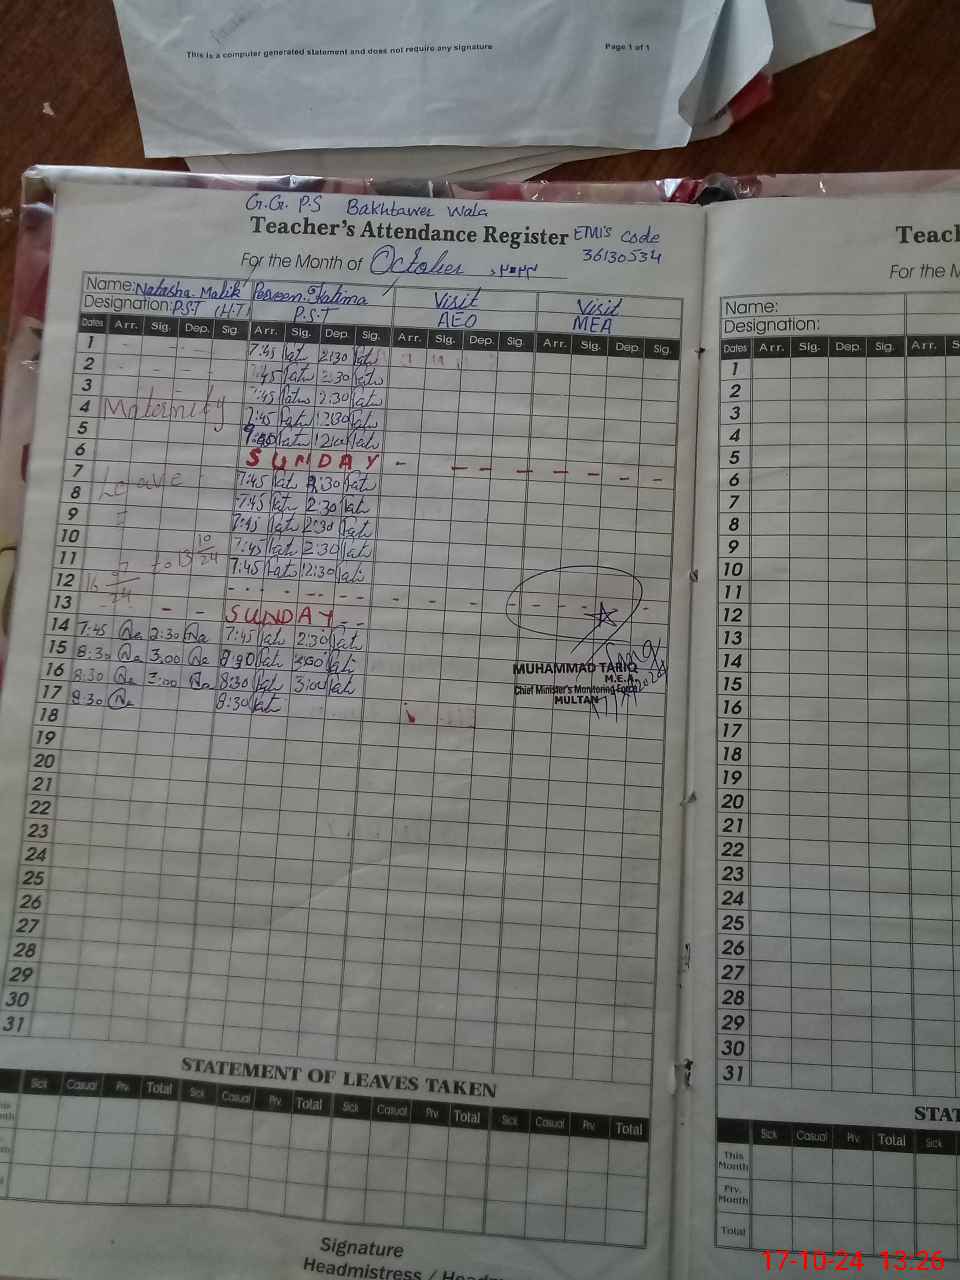 This is a computer generated statement and does not require any signature Page 1 of 1
G.G. P.S Bakhtawer Wala
Teacher's Attendance Register EMIS Code
36130534
For the Month of October
Name: Natasha Malik Perveen Fatima Visit Visit
Designation: P.S.T (H.T) P.S.T AEO MEA
Dates Arr. Sig. Dep. Sig. Arr. Sig. Dep. Sig. Arr. Sig. Dep. Sig. Arr. Sig. Dep. Sig.
1 7:45 2:30
2 7:45 2:30
3 7:45 2:30
4 Maternity 7:45 12:30
5 12:00
6 SUNDAY
7 7:45 2:30
8 Leave 7:45 2:30
9 7:45 2:30
10 7:45 2:30
11 to 13 10/24 7:45 12:30
12 16 7/24
13 SUNDAY
14 7:45 2:30 7:45 2:30
15 8:30 3:00 8:30 3:00
16 8:30 3:00 8:30 3:00
17 8:30 8:30
18
19
20
21
22
23
24
25
26
27
28
29
30
31
MUHAMMAD TARIQ
M.E.A.
Chief Minister's Monitoring Force
MULTAN
STATEMENT OF LEAVES TAKEN
Sick Casual Prv. Total Sick Casual Prv. Total Sick Casual Prv. Total Sick Casual Prv. Total
Signature
Headmistress /
Teach
For the M
Name:
Designation:
Dates Arr. Sig. Dep. Sig. Arr. S
1
2
3
4
5
6
7
8
9
10
11
12
13
14
15
16
17
18
19
20
21
22
23
24
25
26
27
28
29
30
31
STAT
Sick Casual Prv. Total Sick
This Month
Prv. Month
Total
17-10-24 13:26